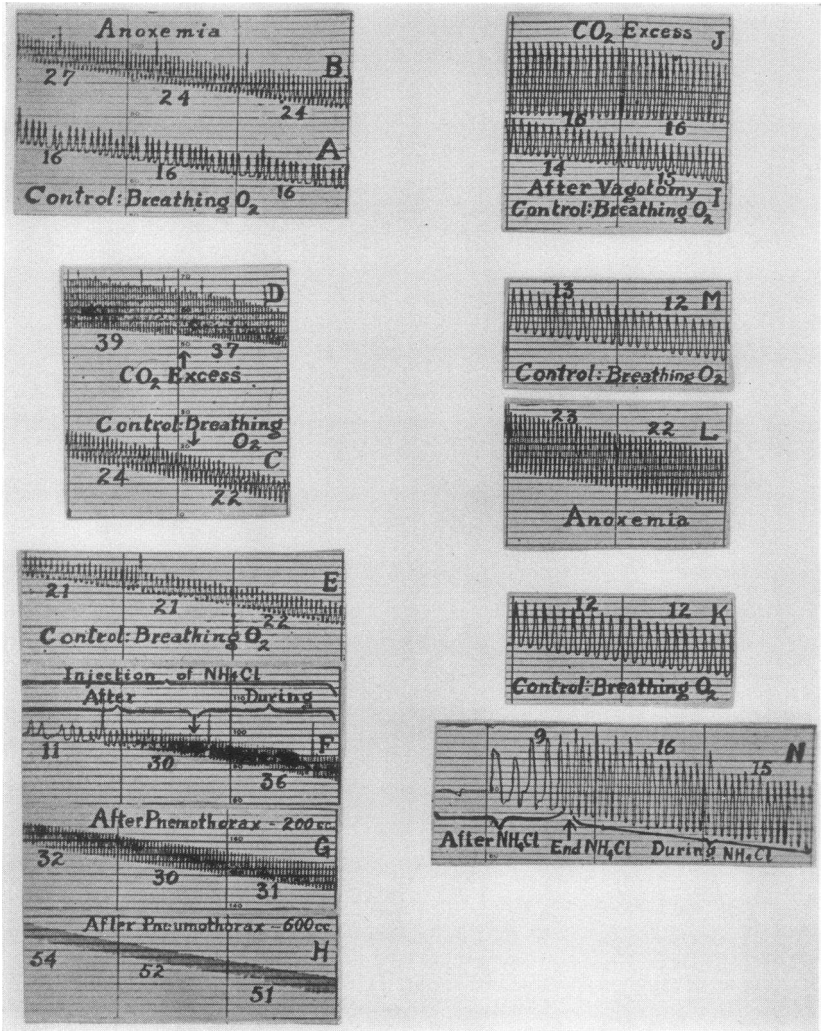 Anoxemia
B
27 24 24
A
16 16 16
Control: Breathing O2
D
39 37
CO2 Excess
Control: Breathing
O2
C
24 22
E
21 21 22
Control: Breathing O2
Injection of NH4Cl
After During
F
11 30 36
After Pnemothorax - 200 cc.
G
32 30 31
After Pneumothorax - 600 cc.
H
54 52 51
CO2 Excess J
16 16
14 15
After Vagotomy I
Control: Breathing O2
13 12 M
Control: Breathing O2
23 22 L
Anoxemia
12 12 K
Control: Breathing O2
9 16 15 N
After NH4Cl End NH4Cl During NH4Cl